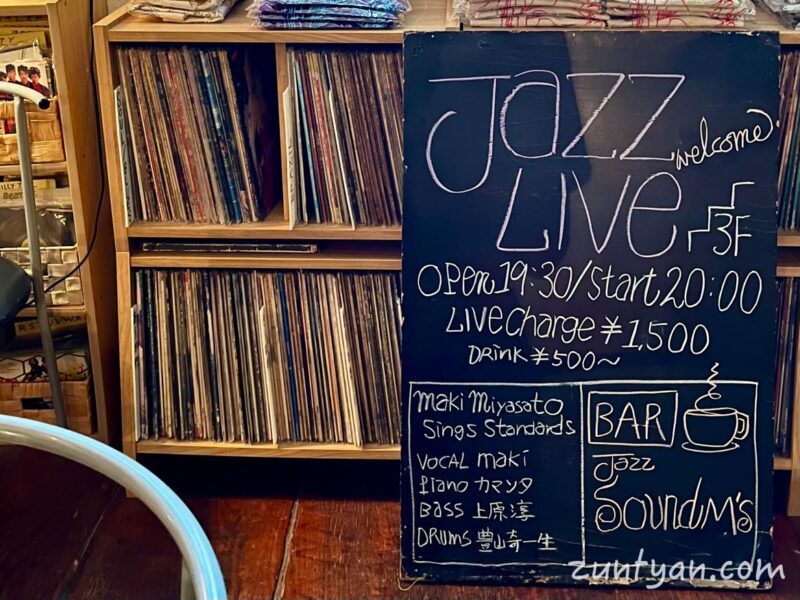 Jazz
welcome
Live
3F
OPen 19:30/Start 20:00
LIVE Charge ¥1,500
DRINK ¥500~
maki Miyasato
Sings Standards
VOCAL maki
Piano カマンタ
BASS 上原淳
DRUMS 豊崎一生
BAR
Jazz
SoundM's
zuntyan.com